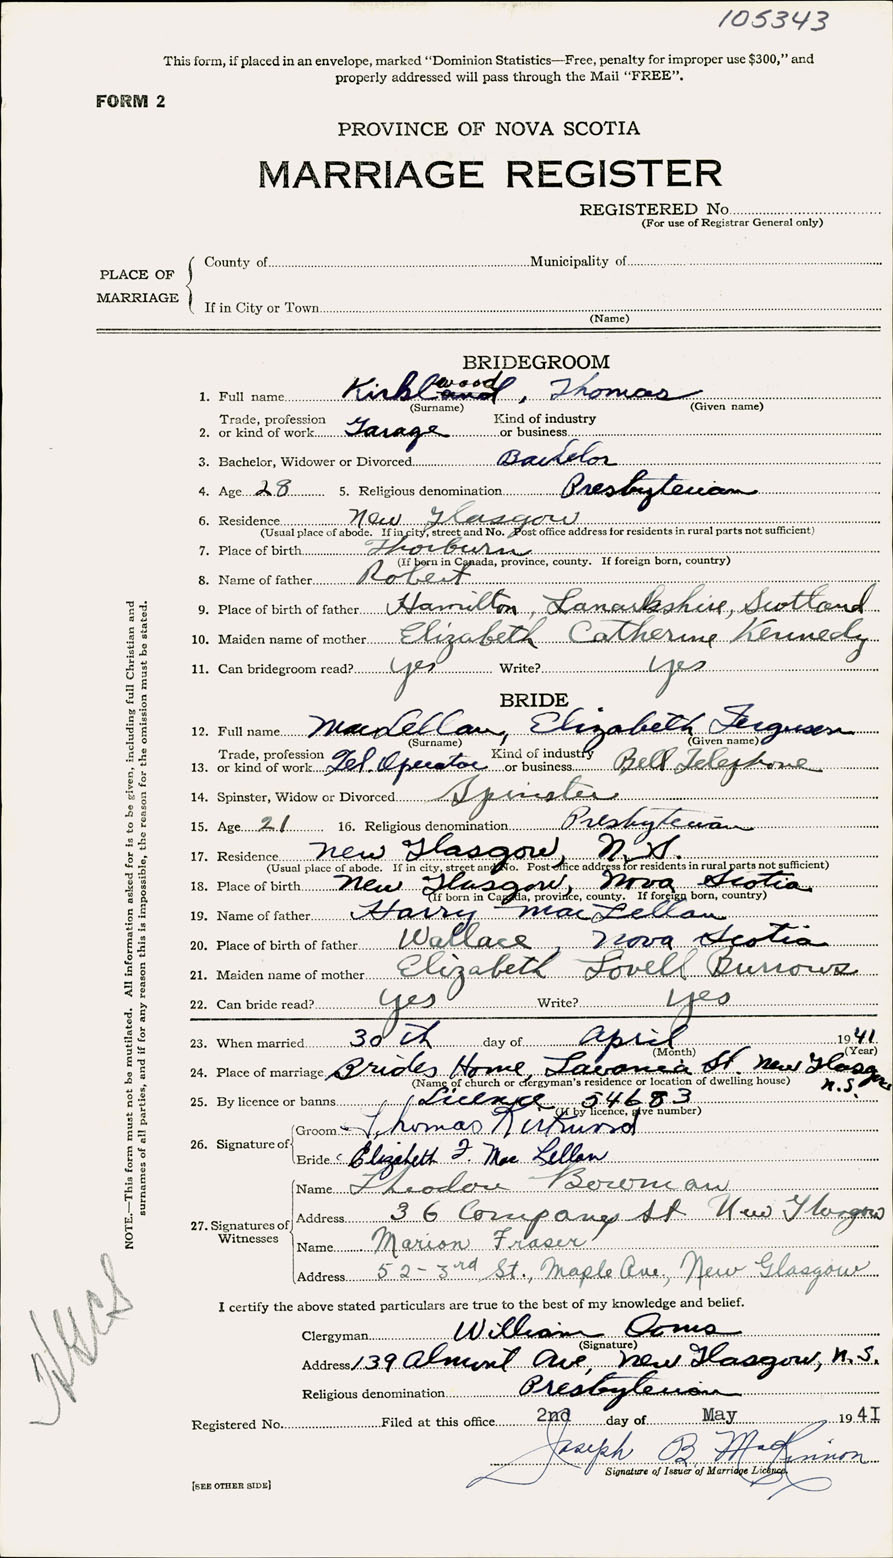 105343
This form, if placed in an envelope, marked “Dominion Statistics—Free, penalty for improper use $300,” and
properly addressed will pass through the Mail “FREE”.
FORM 2
PROVINCE OF NOVA SCOTIA
MARRIAGE REGISTER
REGISTERED No.
(For use of Registrar General only)
PLACE OF MARRIAGE
County of Municipality of
If in City or Town
(Name)
BRIDEGROOM
1. Full name Kirkwood, Thomas
(Surname) (Given name)
2. Trade, profession or kind of work Garage Kind of industry or business
3. Bachelor, Widower or Divorced Bachelor
4. Age 28 5. Religious denomination Presbyterian
6. Residence New Glasgow
(Usual place of abode. If in city, street and No. Post office address for residents in rural parts not sufficient)
7. Place of birth Thorburn
(If born in Canada, province, county. If foreign born, country)
8. Name of father Robert
9. Place of birth of father Hamilton, Lanarkshire, Scotland
10. Maiden name of mother Elizabeth Catherine Kennedy
11. Can bridegroom read? yes Write? yes
BRIDE
12. Full name MacLellan, Elizabeth Ferguson
(Surname) (Given name)
13. Trade, profession or kind of work Tel. Operator Kind of industry or business Bell Telephone
14. Spinster, Widow or Divorced Spinster
15. Age 21 16. Religious denomination Presbyterian
17. Residence New Glasgow, N.S.
(Usual place of abode. If in city, street and No. Post office address for residents in rural parts not sufficient)
18. Place of birth New Glasgow, Nova Scotia
(If born in Canada, province, county. If foreign born, country)
19. Name of father Harry MacLellan
20. Place of birth of father Wallace, Nova Scotia
21. Maiden name of mother Elizabeth Lovell Burrows
22. Can bride read? yes Write? yes
23. When married 30th day of April 1941
(Month) (Year)
24. Place of marriage Brides Home, Lavania St. New Glasgow N.S.
(Name of church or clergyman's residence or location of dwelling house)
25. By licence or banns Licence 54683
(If by licence, give number)
26. Signature of
Groom Thomas Kirkwood
Bride Elizabeth F. MacLellan
27. Signatures of Witnesses
Name Theodore Bowman
Address 36 Company St New Glasgow
Name Marion Fraser
Address 52-3rd St., Maple Ave., New Glasgow
I certify the above stated particulars are true to the best of my knowledge and belief.
Clergyman William Ooms
(Signature)
Address 139 Almont Ave, New Glasgow, N.S.
Religious denomination Presbyterian
Registered No. Filed at this office 2nd day of May 1941
Joseph B. MacKinnon
Signature of Issuer of Marriage Licence.
[SEE OTHER SIDE]
NOTE.—This form must not be mutilated. All information asked for is to be given, including full Christian and
surnames of all parties, and if for any reason this is impossible, the reason for the omission must be stated.